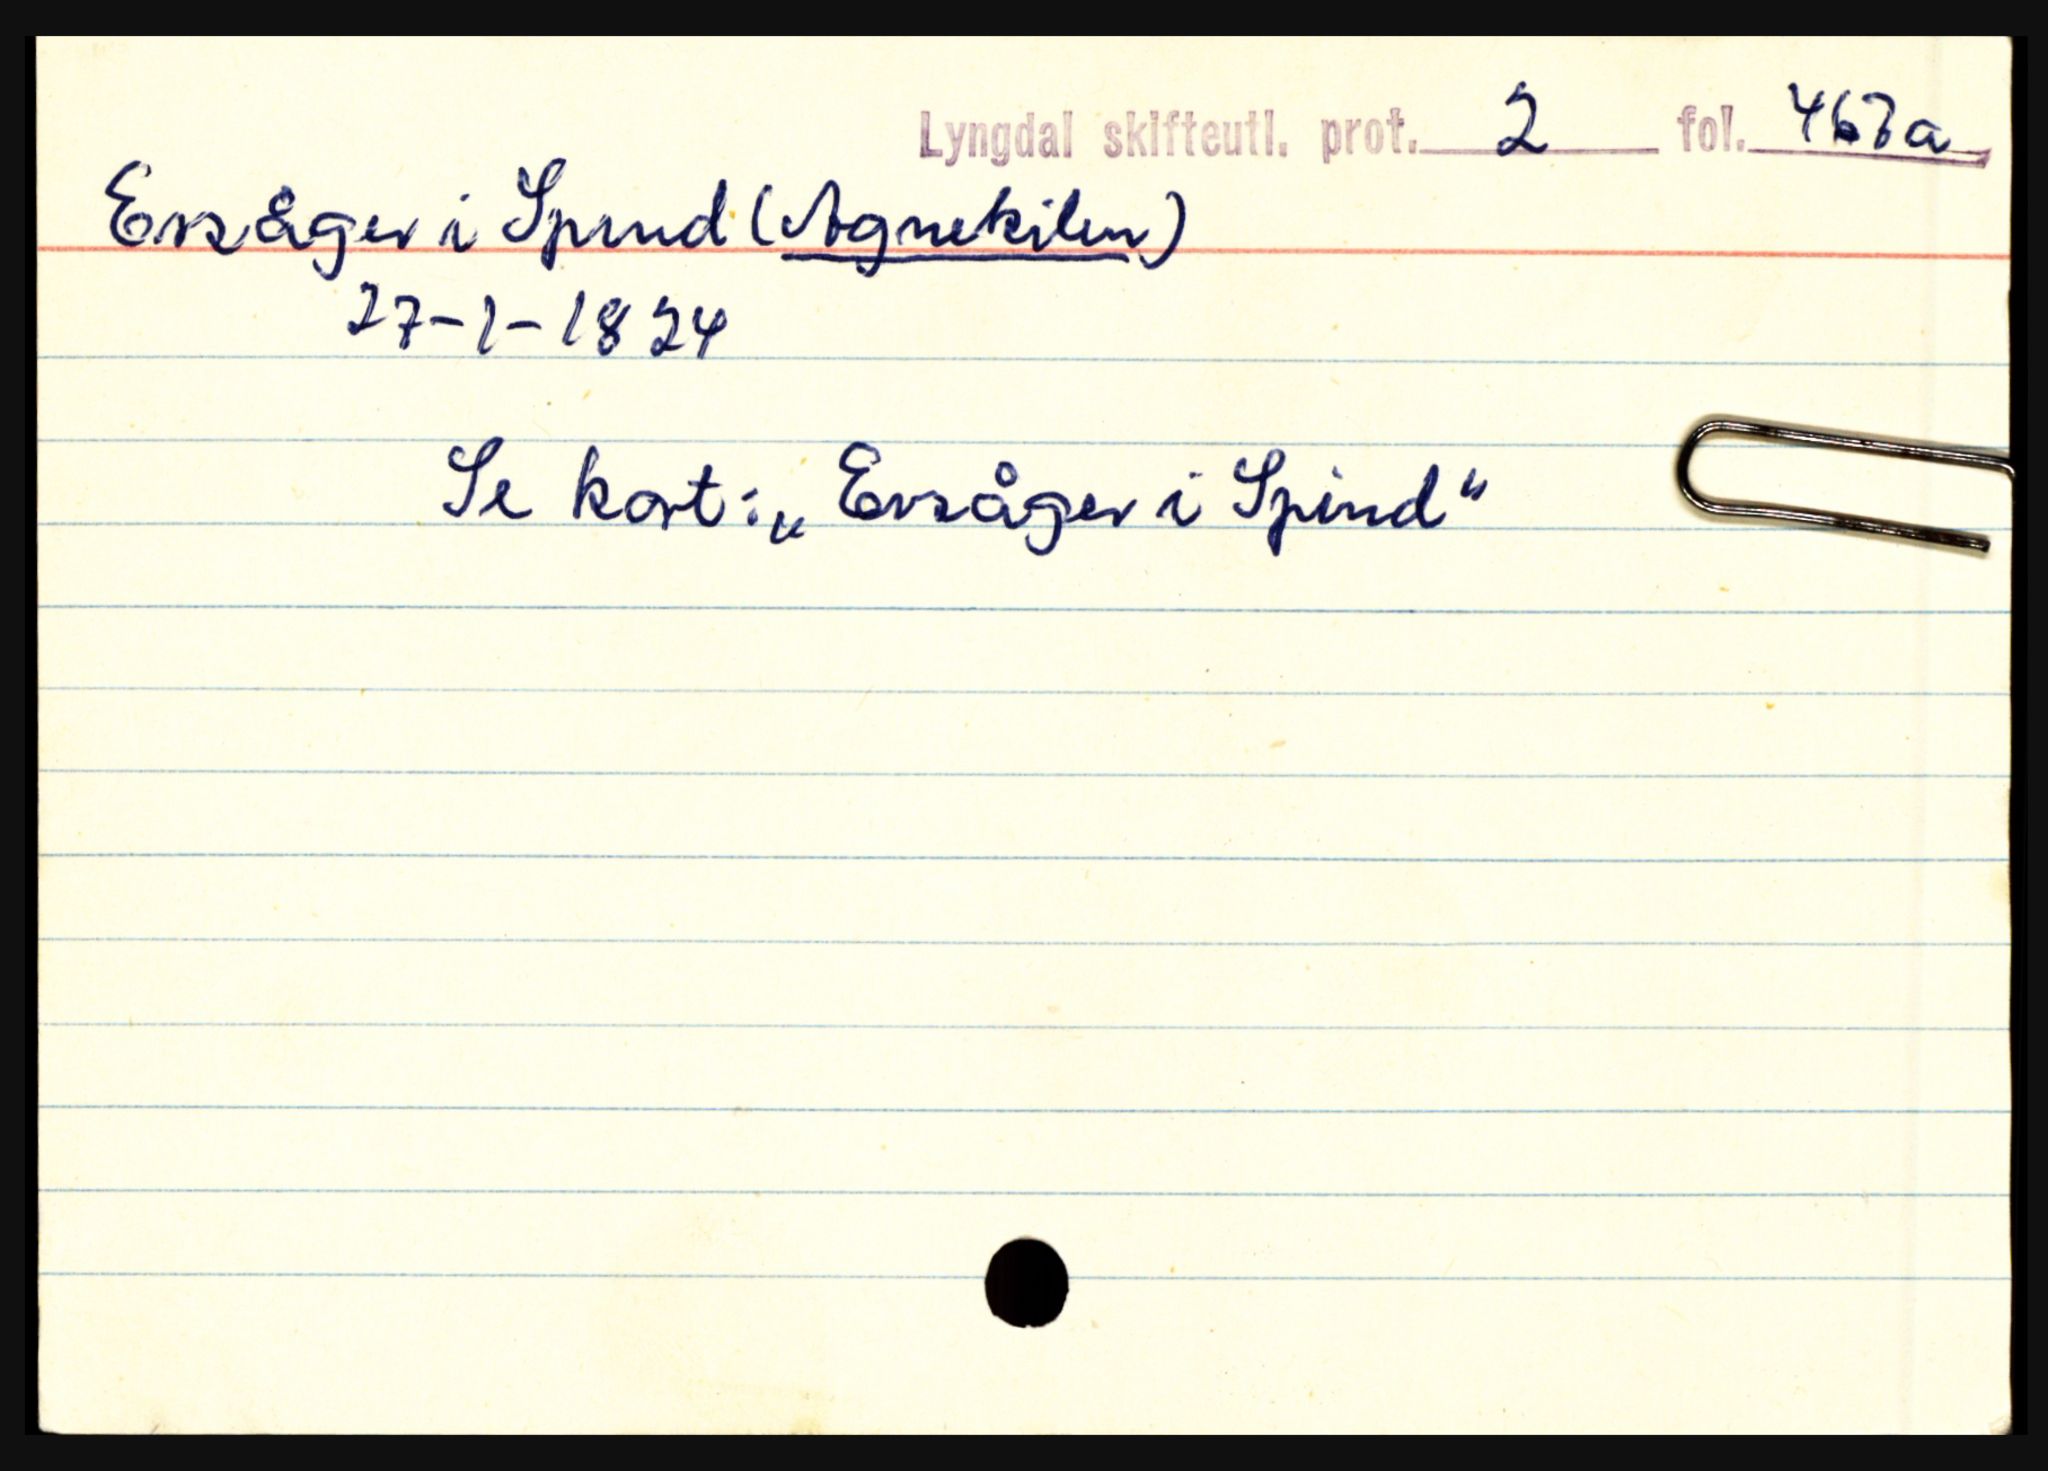 Lyngdal skifteutl. prot. 2 fol. 467a
Ersåger i Spind (Agnekilen)
27-1-1824
Se kort: „Ersåger i Spind“